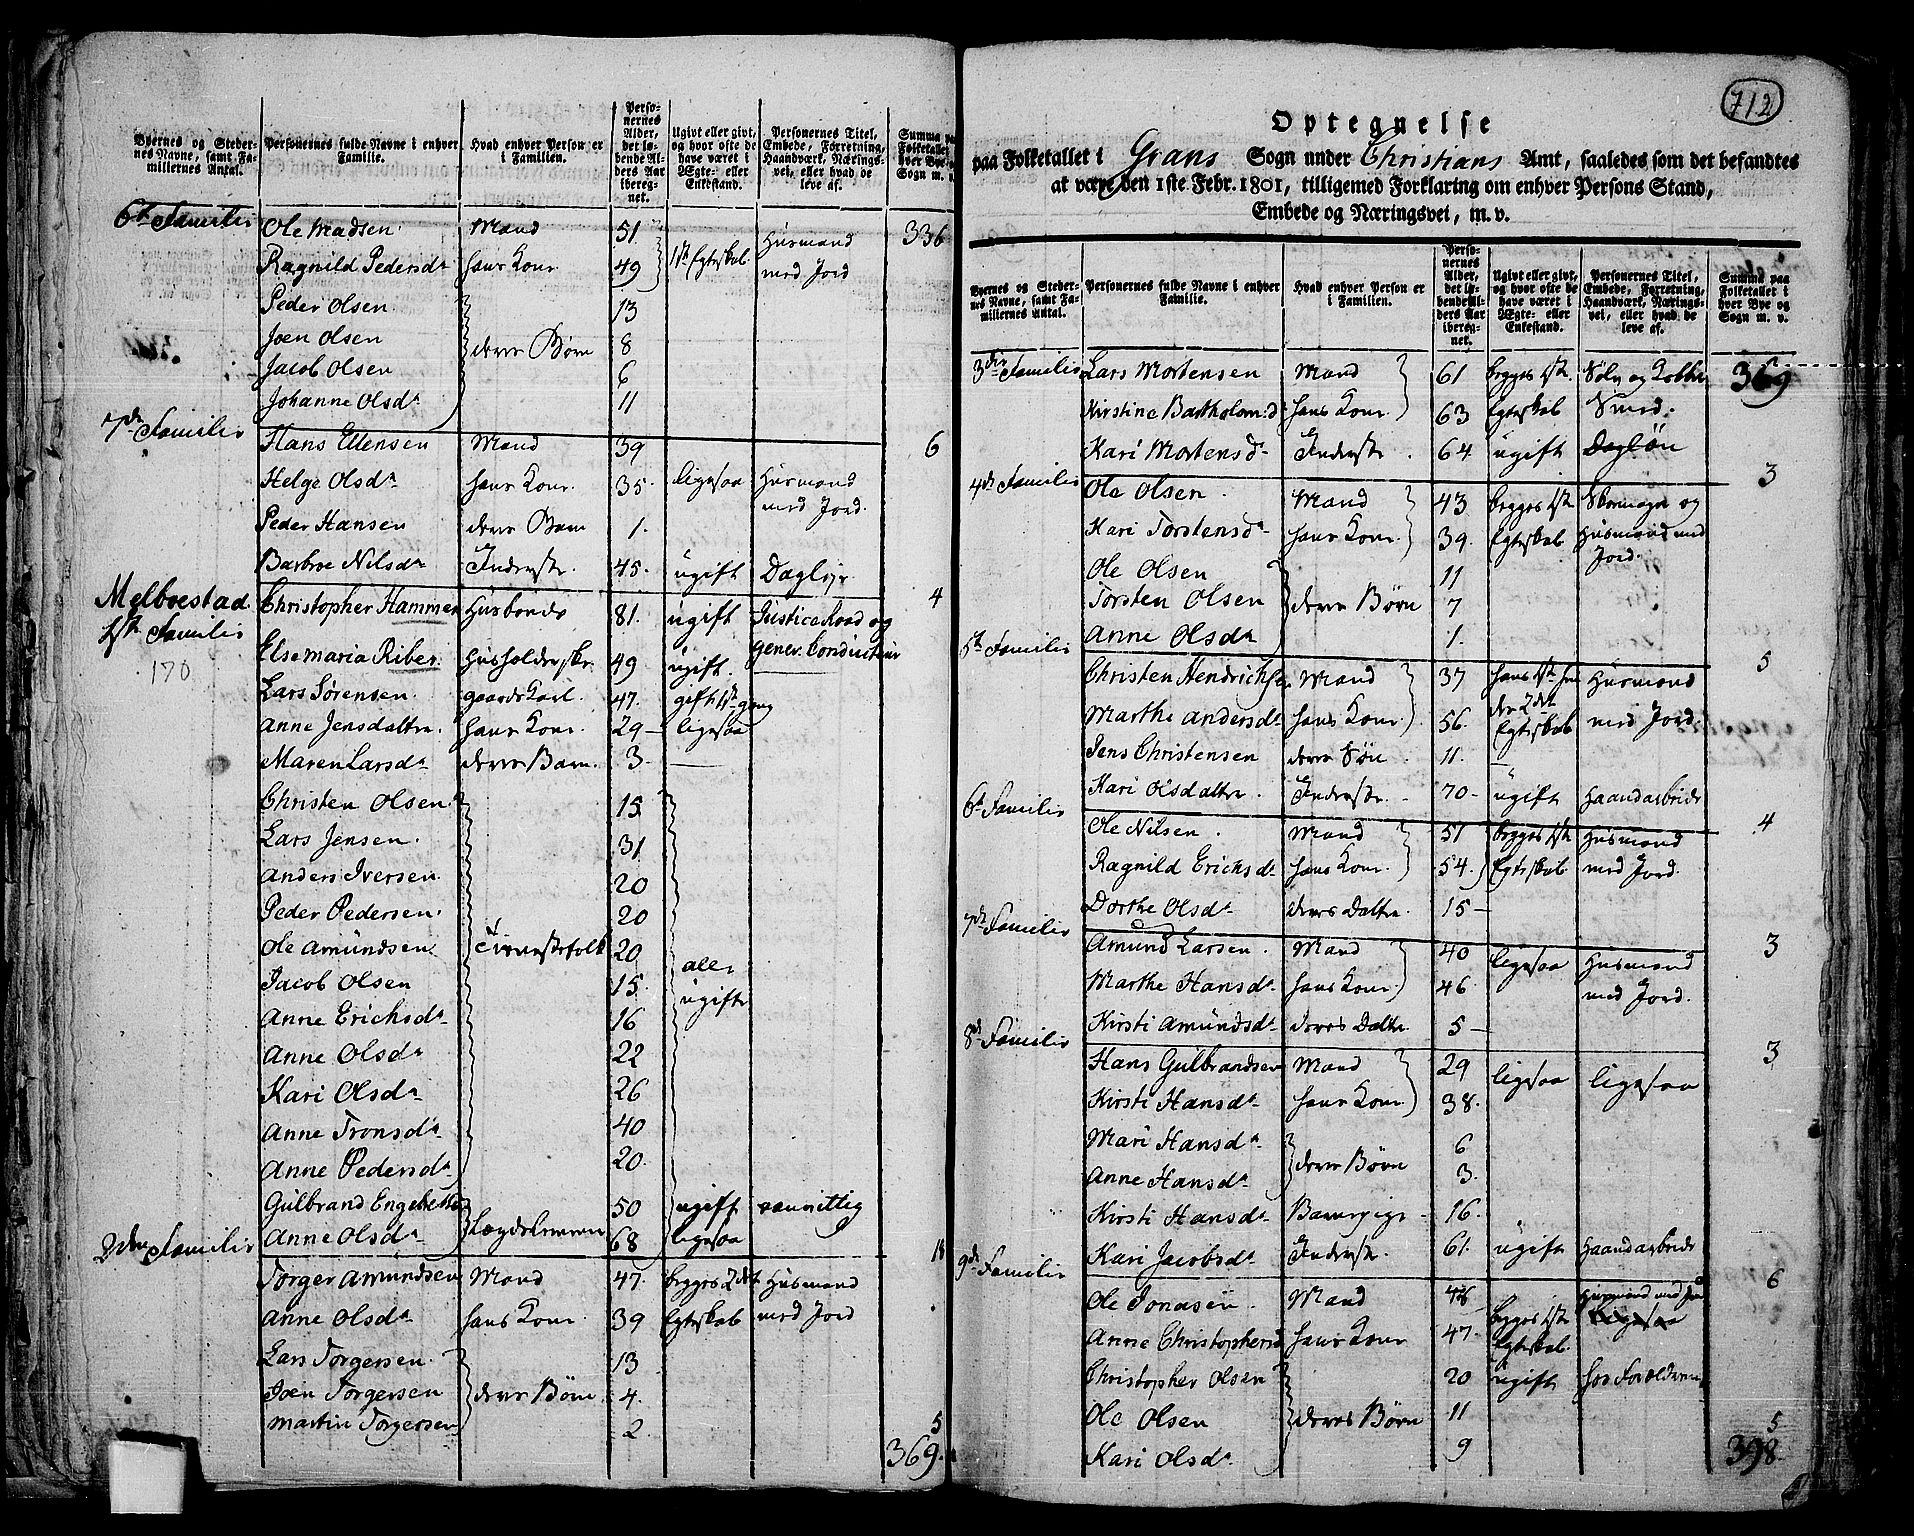 Byernes og Steder-
nes Navne, samt Fa-
millernes Antal.
Personernes fulde Navne i enhver
Familie.
Hvad enhver Person er
i Familien.
Perso-
nernes
Alder,
det lø-
bende Al-
ders Aar
ibereg-
net.
Ugivt eller givt,
og hvor ofte de
have været i
Ægte- eller
Enkestand.
Personernes Titel,
Embede, Forretning,
Haandværk, Nærings-
vei, eller hvad de
leve af.
Summa paa
Folketallet
hver Bye og
Sogn m. v.
6te Familie Ole Madsen. Mand 51 1ste Egteskab Husmand 336
Ragnild Pedersda hans Kone 49 med Jord
Peder Olsen 13
Joen Olsen deres Børn 8
Jacob Olsen 6
Johanne Olsda 11
7de Familie Hans Ellensen Mand 39 6
Helge Olsda hans Kone 35 ligesaa Husmand
med Jord.
Peder Hansen deres Barn 1.
Barbroe Nilsda Inderste 45. ugift Dagleje
Melboestad Christopher Hammer Husbonde 81. ugift Justice Raad og 4
1ste Familie general Conducteur
170
Else maria Riber Husholderske 49 ugift.
Lars Sørensen gaardskarl 47. gift 1ste gang
Anne Jensdatter hans Kone 29 ligesaa
Maren Larsda deres Barn 3.
Christen Olsen 15
Lars Jensen 31
Anders Iversen 20
Peder Pedersen 20
Ole Amundsen Tienestefolk 20
Jacob Olsen 15. alle
Anne Erichsda 16 ugifte
Anne Olsda 22
Kari Olsda 26
Anne Tronsda 40
Anne Pedersda 20.
Gulbrand Engebretsen 50 ugift vanvittig
Anne Olsda Lægdslemmer 68 ligesaa
2den Familie 18
Torger Amundsen Mand 47. begges 2det Husmand
Anne Olsda hans Kone 39 Egteskab med Jord
Lars Torgersen 13
Joen Torgersen deres Børn 4.
Martin Torgersen 2 5
369.
712
Optegnelse
paa Folketallet i Grans Sogn under Christians Amt, saaledes som det befandtes
at være den 1ste Febr. 1801, tilligemed Forklaring om enhver Persons Stand,
Embede og Næringsvei, m. v.
Byernes og Steder-
nes Navne, samt Fa-
millernes Antal.
Personernes fulde Navne i enhver
Familie.
Hvad enhver Person er
i Familien.
Perso-
nernes
Alder,
det lø-
bende Al-
ders Aar
ibereg-
net.
Ugivt eller givt,
og hvor ofte de
have været i
Ægte- eller
Enkestand.
Personernes Titel,
Embede, Forretning,
Haandværk, Nærings-
vei, eller hvad de
leve af.
Summa paa
Folketallet i
hver Bye og
Sogn m. v.
3die Familie Lars Mortensen Mand 61 begges 1ste Sølv og Kobber 369
Kirstine Bartholom:d: hans Kone 63 Egteskab Smed.
Kari Mortensda Inderste 64 ugift Dagløn
3
4de Familie Ole Olsen. Mand 43 begges 1ste Skomager og
Kari Torstensda hans Kone 39. Egteskab Husmand med
Jord.
Ole Olsen 11
Torsten Olsen deres Børn 7
Anne Olsda 1.
5te Familie 5
Christen Hendrichsen Mand 37 hans 1ste hendes 2det Husmand
Marthe Andersda hans Kone 56. Egteskab med Jord
Jens Christensen deres Søn 11.
Kari Olsdatter. Inderste 70 ugift Haandarbeide
6te Familie 4
Ole Nilsen. Mand 51 begges 1ste Husmand
Ragnild Erichsda hans Kone 54. Egteskab med Jord.
Dorthe Olsda deres Datter 15
7de Familie 3
Amund Larsen. Mand 40 ligesaa Husmand
Marthe Hansda hans Kone 46 med Jord.
Kirsti Amundsda deres Datter 5
8de Familie 3
Hans Gulbrandsen Mand 29 ligesaa ligesaa
Kirsti Hansda hans Kone 38.
Mari Hansda 6
Anne Hansda deres Børn 3.
Kirsti Hansda Barnepige 16.
Kari Jacobsda Inderste 61. ugift Haandarbeide
9de Familie 6
Ole Jonasen. Mand 46 begges 1ste Husmand med Jord
ligesaa
Anne Christophersd hans Kone 47. Egteskab
Christopher Olsen 20 ugift hos Forældrene
Ole Olsen deres Børn 11
Kari Olsda 9
5
398.